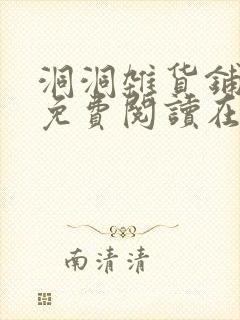 洞洞雜貨鋪
免費閱讀在
南清清